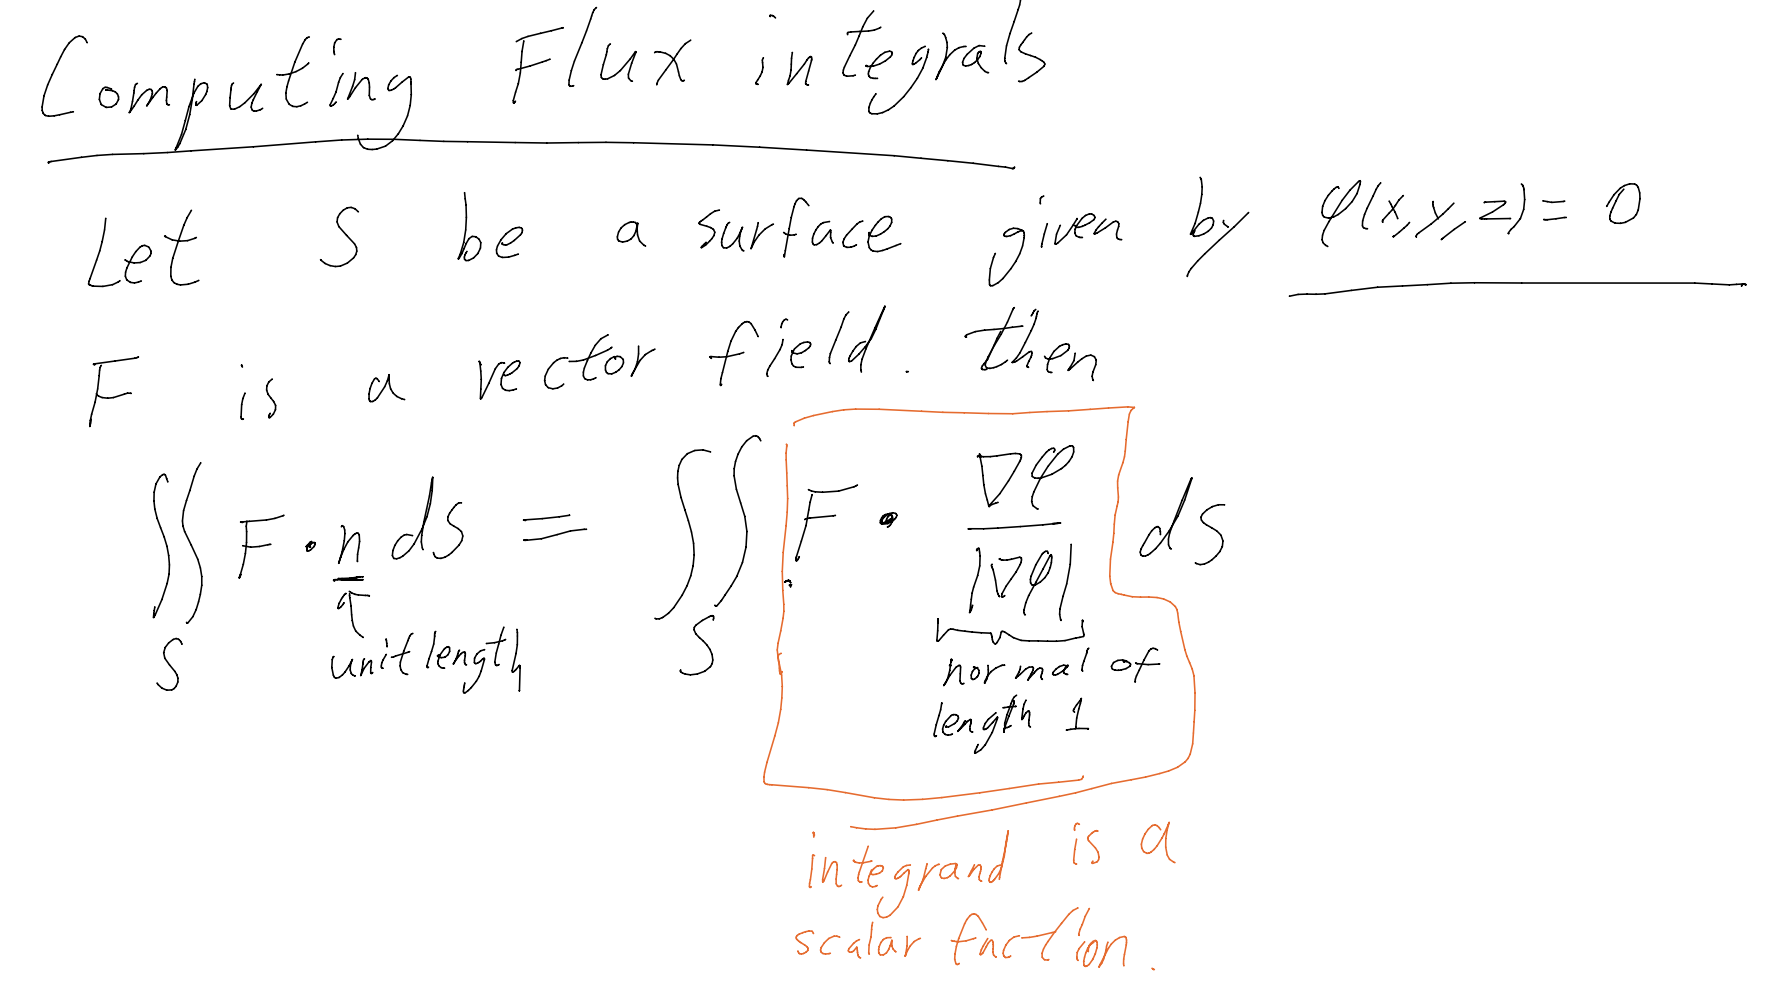 Computing Flux integrals
Let S be a surface given by φ(x,y,z) = 0
F is a vector field. then
∬_S F · n ds = ∬_S F · ∇φ/|∇φ| ds
unit length
normal of
length 1
integrand is a
scalar fnction.